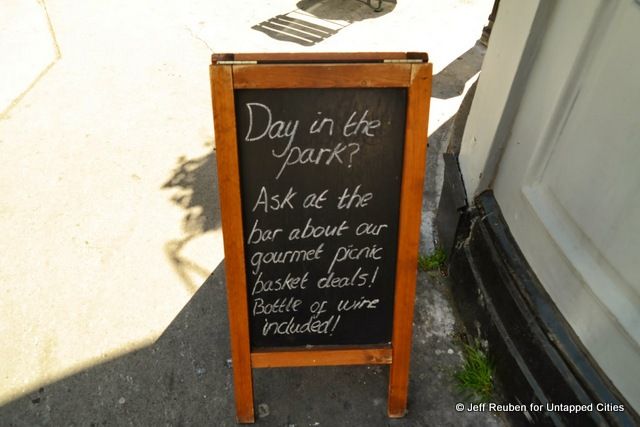 Day in the
park?
Ask at the
bar about our
gourmet picnic
basket deals!
Bottle of wine
included!
© Jeff Reuben for Untapped Cities